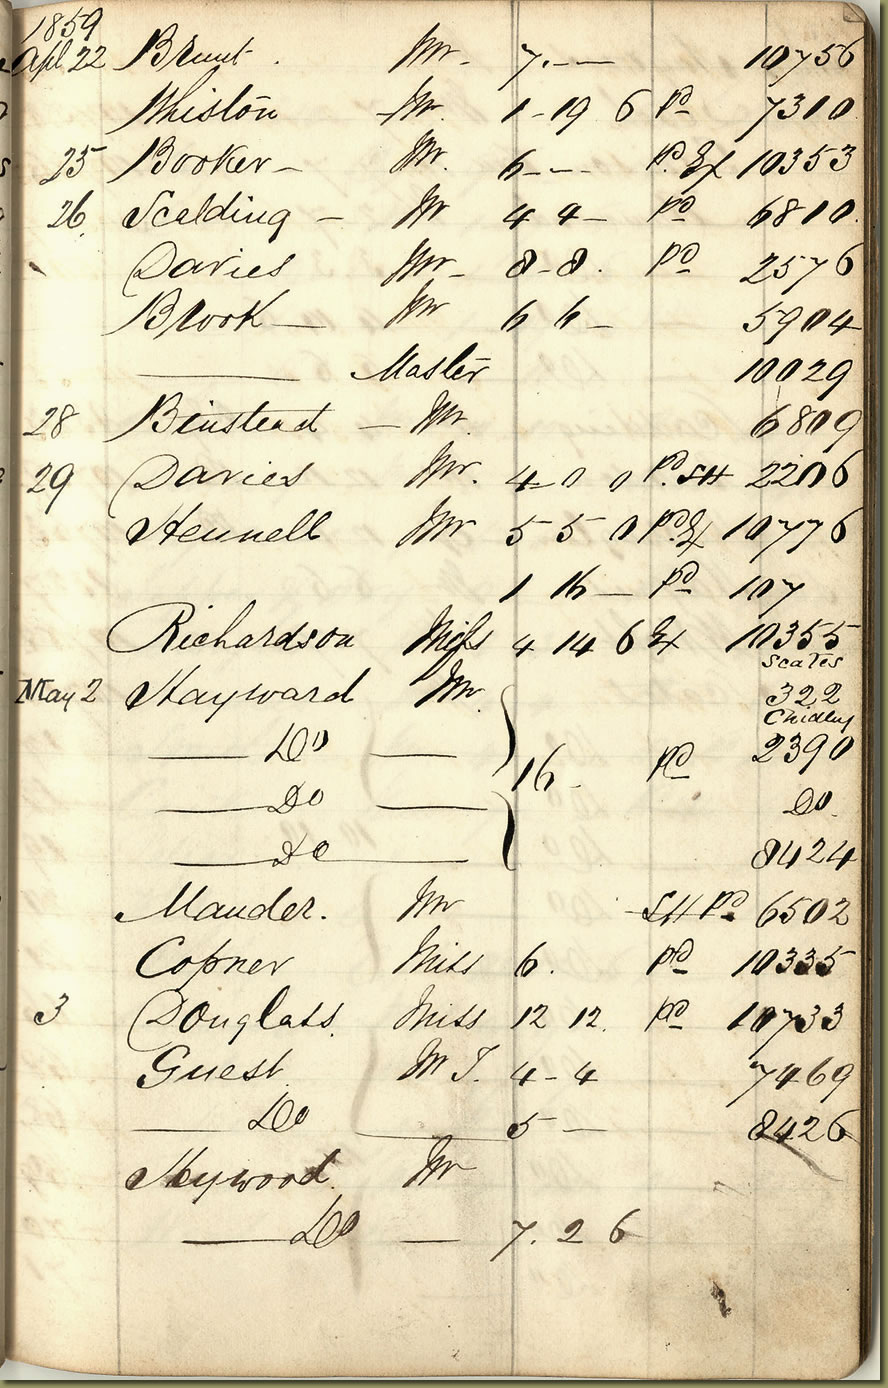 1859
Apl 22 Brunt. Mr. 7.-- 10756
Whiston Mr. 1-19 6 Pd 7310
25 Booker- Mr. 6-- Pd. Ex 10353
26 Scalding - Mr 4 4- Pd 6810.
Davies Mr- 8-8. Pd 2576
Brook- Mr 6 6- 5904
—— Master 10029
28 Binstead - Mr. 6809
29 Davies Mr. 4 0 0 Pd. SH 2206
Hennell Mr 5 5 0 Pd. Ex 10776
1 16- Pd 107
Richardson Miss 4 14 6 Ex 10355
Scates
May 2 Hayward Mr. 322
Chidley
—— Do —— 2390
16- Pd
—— Do —— Do.
—— Do —— 8424
Mander. Mr SH Pd. 6502
Copner Miss 6. Pd 10335
3 Douglass. Miss 12 12. Pd 10733
Guest M T. 4-4 7469
—— Do —— 5- 8426
Heywood. Mr
—— Do — 7. 2 6